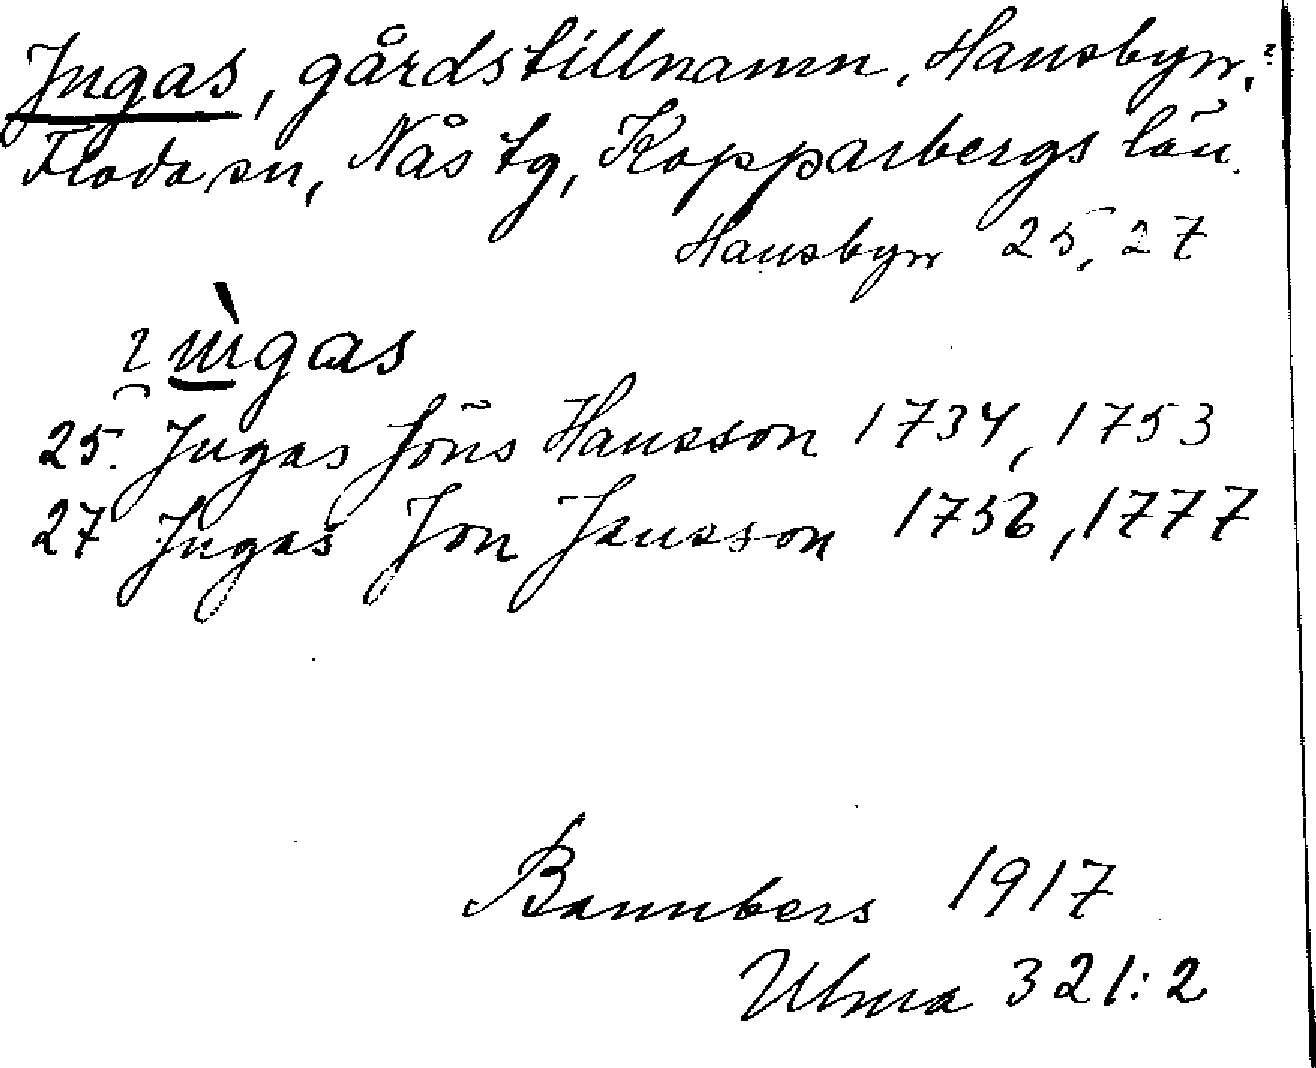 Ingas, gårdstillnamn, Hansbyn,
Floda sn, Nås tg, Kopparbergs län.
Hansbyn 25, 27
25. Ingas Jöns Hansson 1734, 1753
27 Ingas Jon Jansson 1756, 1777
Bannbers 1917
Ulma 321:2